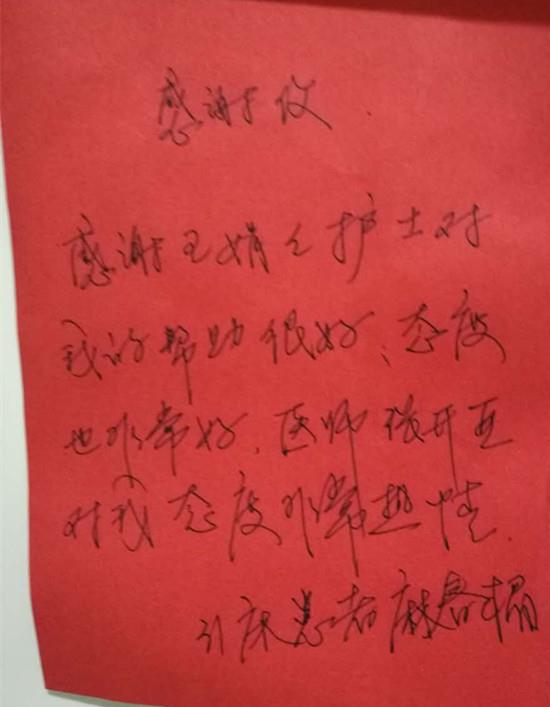 感谢信
感谢王娟之护士对
我的帮助很好、态度
也非常好、医师张开亚
对我态度非常热情.
31床患者庞春楣